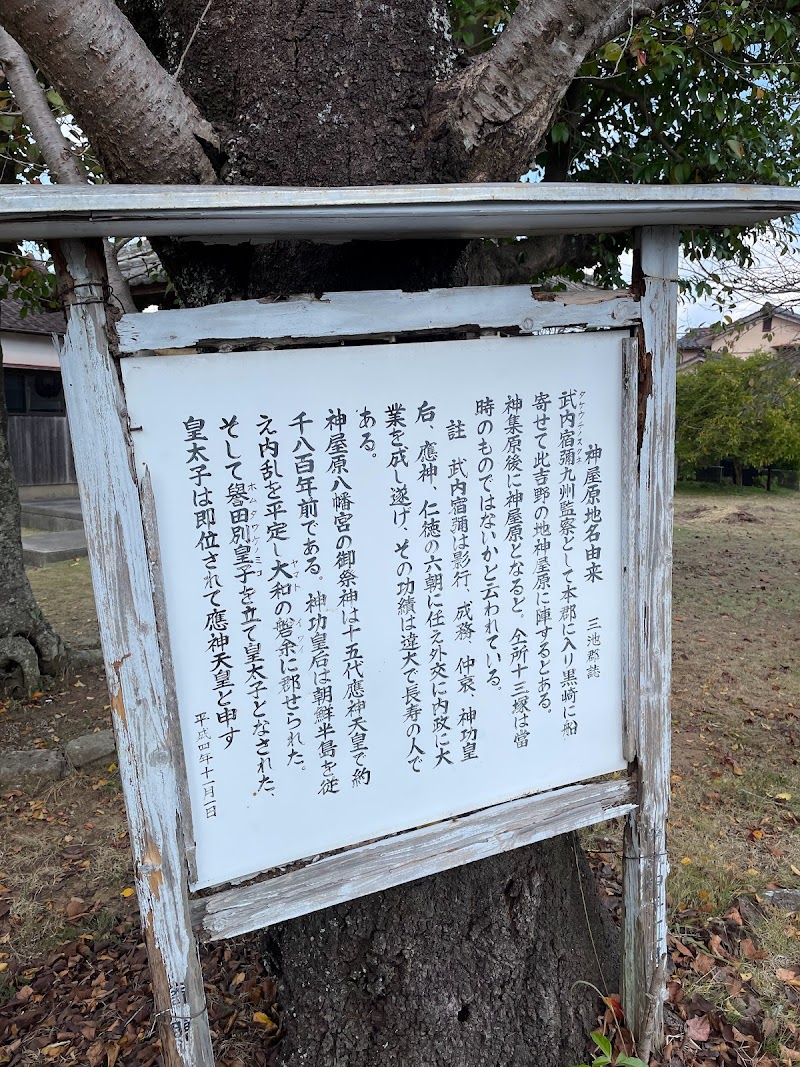 神屋原地名由来　三池郡誌
タケウチノスクネ
武内宿彌九州監察として本郡に入り黒崎に船
寄せて此吉野の地神屋原に陣するとある。
神集原後に神屋原となると。仝所十三塚は當
時のものではないかと云われている。
註　武内宿彌は影行、成務、仲哀、神功皇
后、應神、仁徳の六朝に任え外交に内政に大
業を成し遂げ、その功績は違大で長寿の人で
ある。
神屋原八幡宮の御祭神は十五代應神天皇で約
千八百年前である。神功皇后は朝鮮半島を従
え内乱を平定し大和の磐余に都せられた。
ヤマト　イワイ
そして譽田別皇子を立て皇太子となされた、
ホムタワケノミコ
皇太子は即位されて應神天皇と申す
平成四年十一月一日